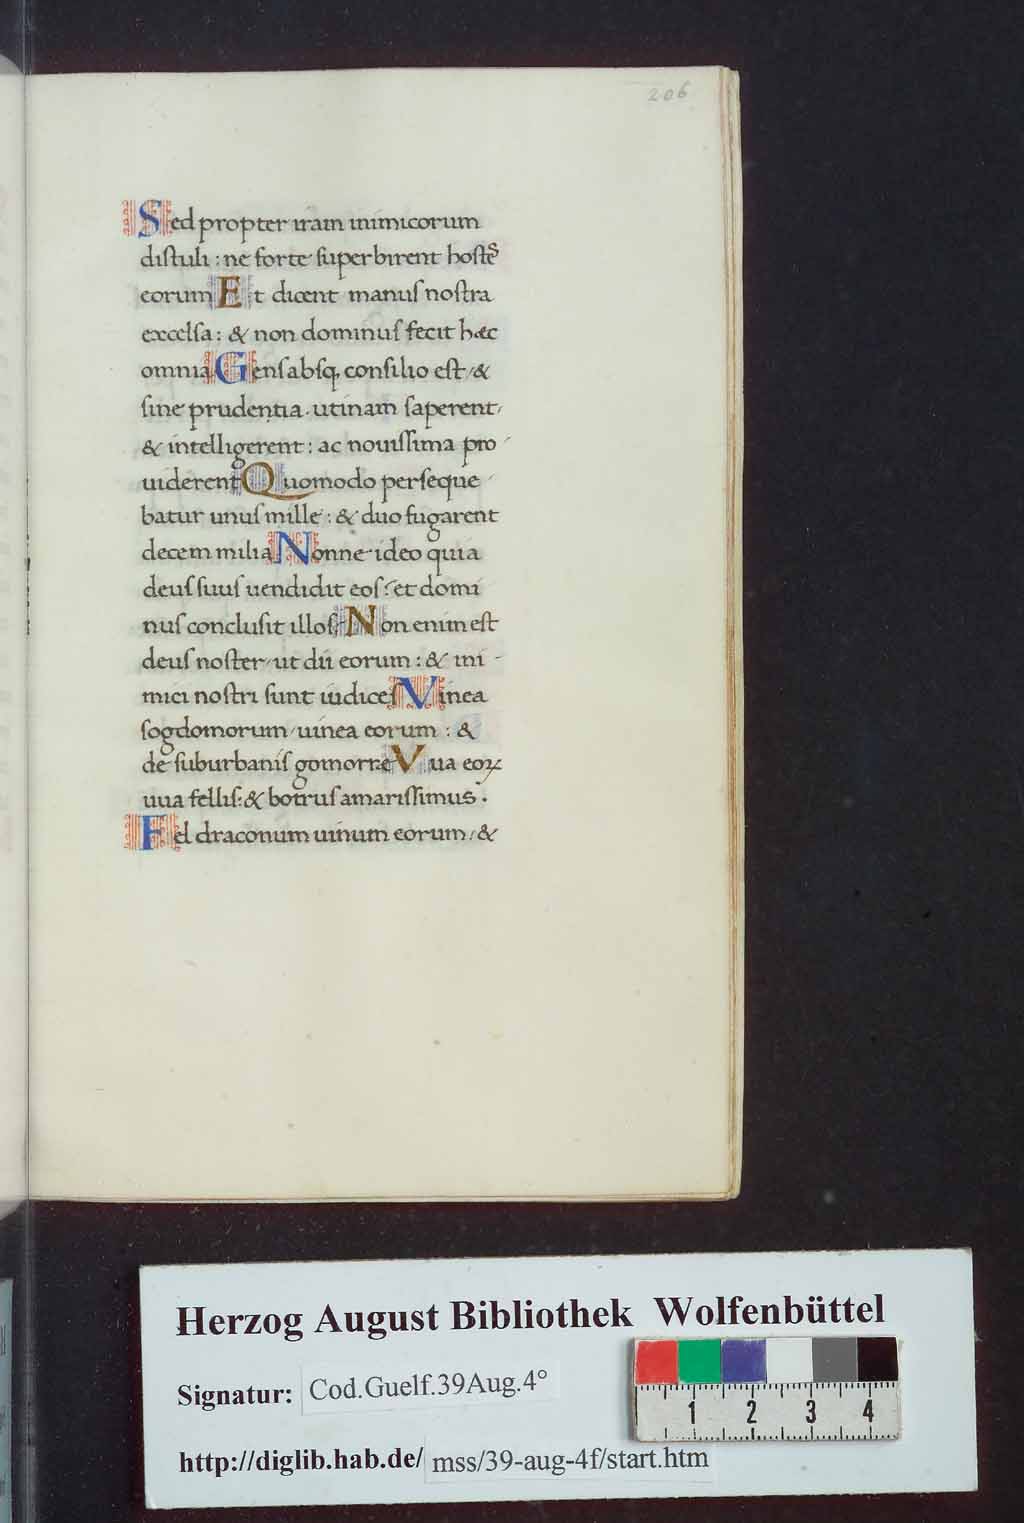 206
Sed propter iram inimicorum
distuli : ne forte superbirent hostes
eorum Et dicent manus nostra
excelsa : & non dominus fecit hæc
omnia Gens absq; consilio est / &
sine prudentia . utinam saperent /
& intelligerent : ac nouissima pro
uiderent Quomodo perseque
batur unus mille : & duo fugarent
decem milia Nonne ideo quia
deus suus uendidit eos ? et domi
nus conclusit illos ? Non enim est
deus noster / ut dii eorum : & ini -
mici nostri sunt iudices Vinea
sogdomorum / uinea eorum : &
de suburbanis gomorre Vua eoꝝ
uua fellis : & botrus amarissimus .
Fel draconum uinum eorum / &
Herzog August Bibliothek Wolfenbüttel
Signatur: Cod.Guelf.39Aug.4°
1 2 3 4
http://diglib.hab.de/ mss/39-aug-4f/start.htm